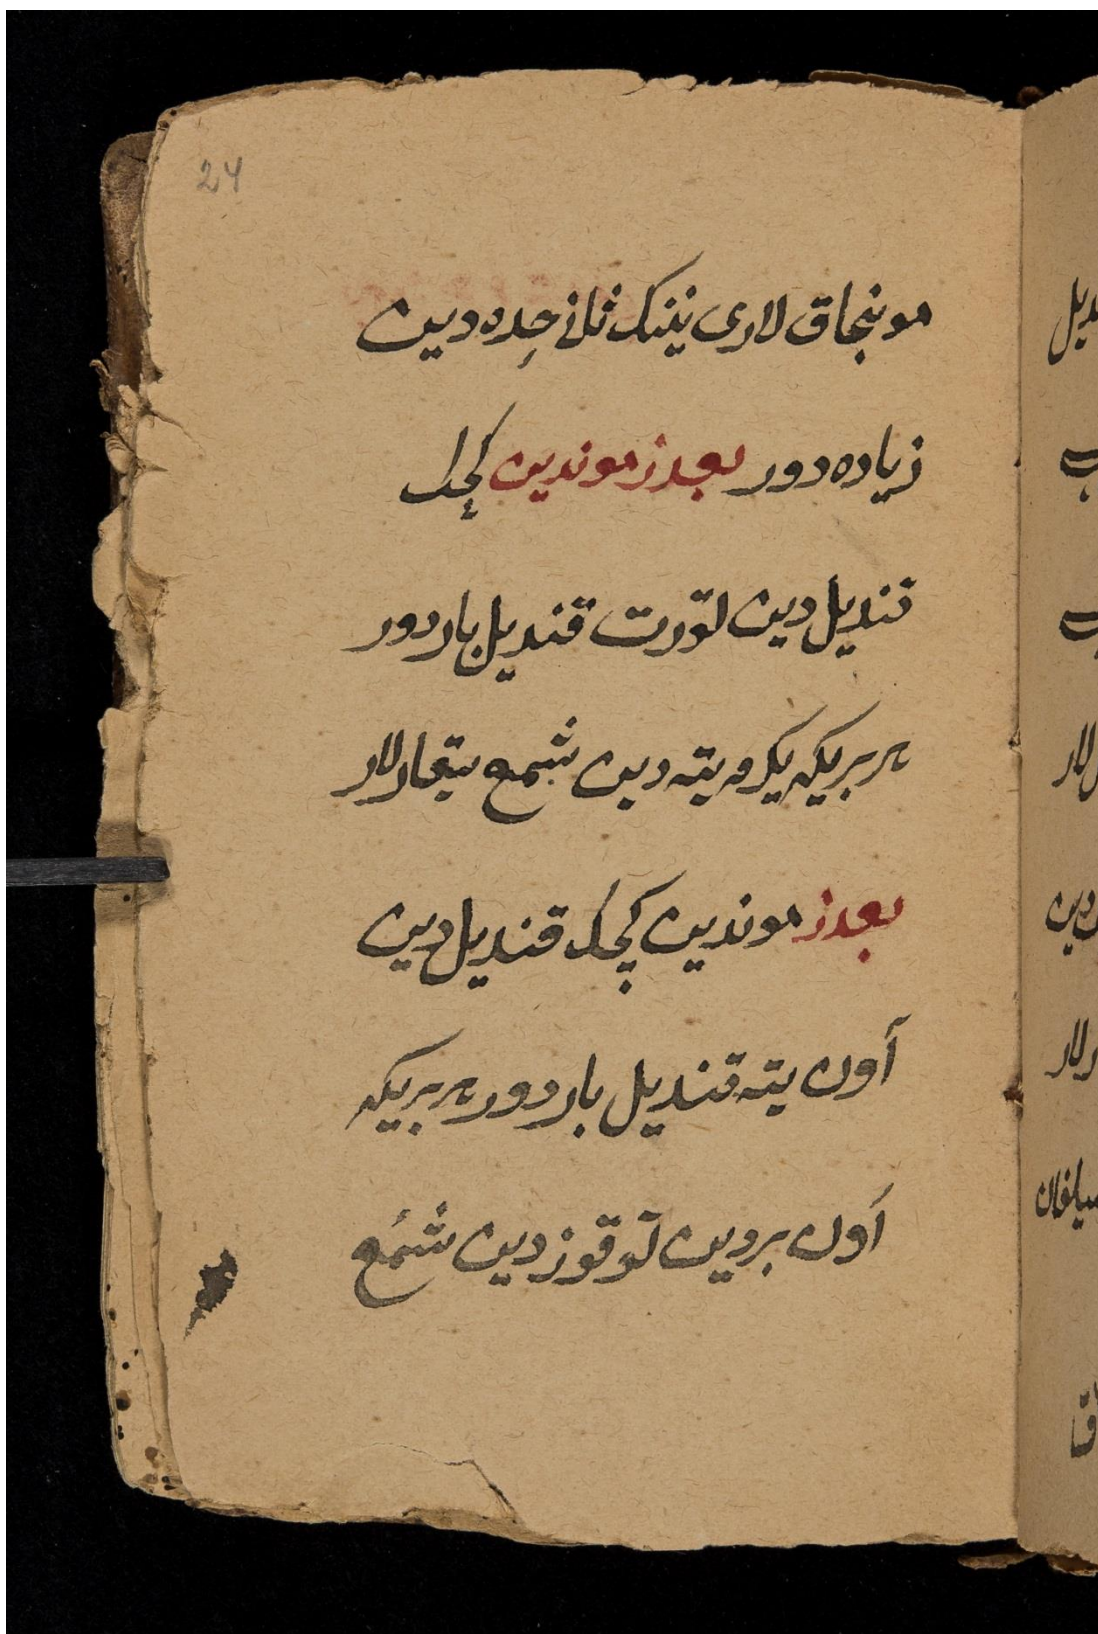 24
مونجاق لاری نینک ثانی جده دین
زیاده دور بعدز موندین کچک
قندیل دین تورت قندیل بار دور
هر بریکه یکرمه یته دین شمع یتجارلار
بعدز موندین کچک قندیل دین
آون یته قندیل بار دور هر بریکه
آون بردین توقوز دین شمع